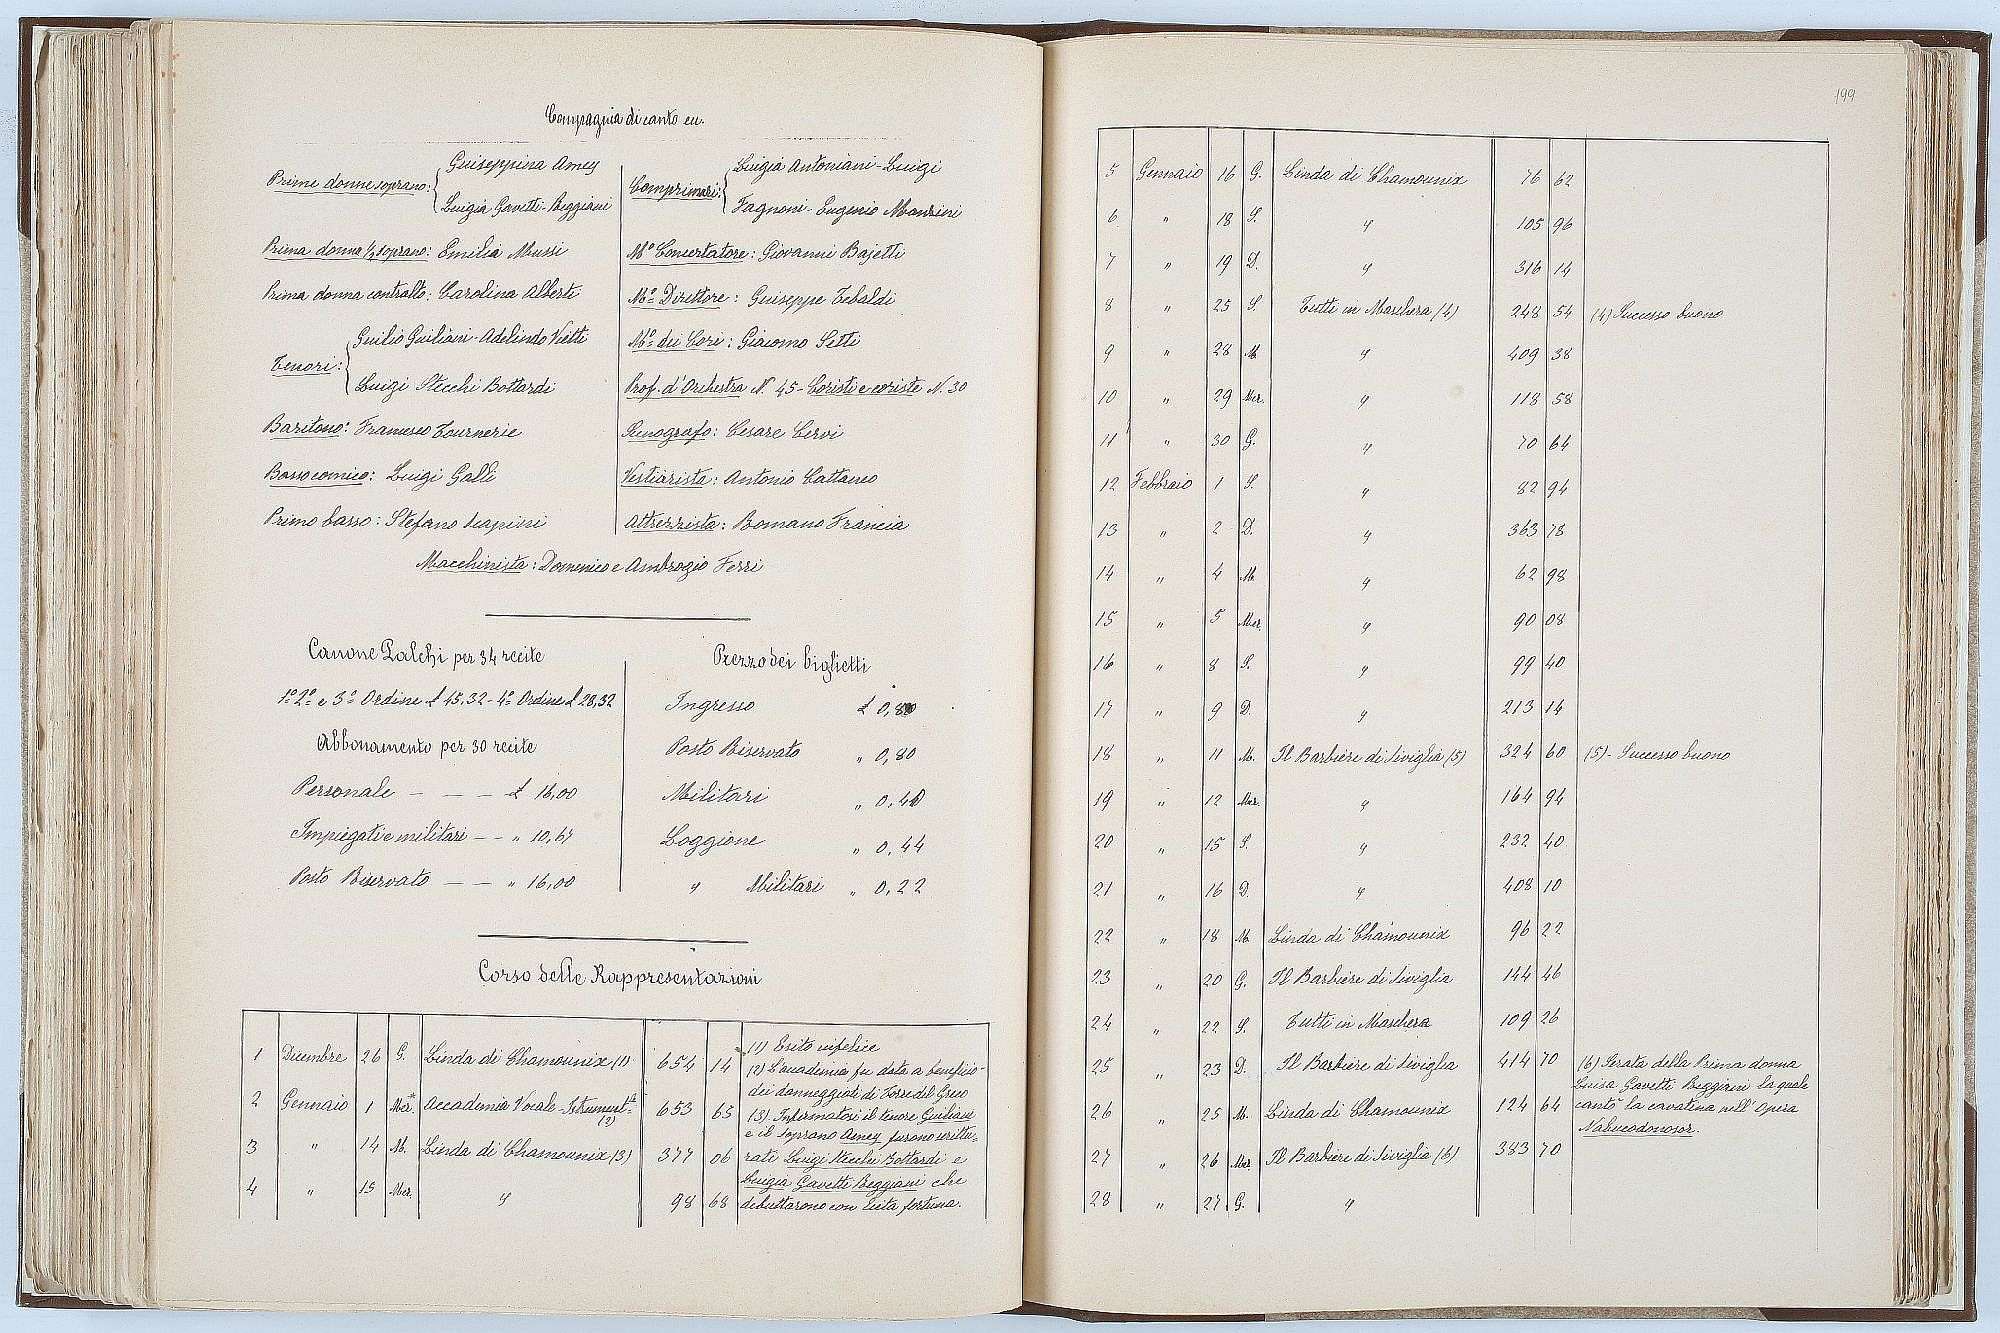 Compagnia di canto ecc.
Prime donne soprano: Giuseppina Amey
Luigia Gavetti-Reggiani
Prima donna ½ soprano: Emilia Mussi
Prima donna contralto: Carolina Alberti
Tenori: Giulio Giuliani - Adelindo Vietti
Luigi Stecchi Bottardi
Baritono: Francesco Tournerie
Basso comico: Luigi Galli
Primo basso: Stefano Scapini
Comprimari: Luigia Antoniani - Luigi
Fagnoni - Eugenio Manzini
Mo Concertatore: Giovanni Bajetti
Mo Direttore: Giuseppe Tebaldi
Mo dei Cori: Giacomo Setti
Prof. d'Orchestra N. 45 - Coristi e coriste N. 30
Scenografo: Cesare Cervi
Vestiarista: Antonio Cattaneo
Attrezzista: Romano Francia
Macchinista: Domenico e Ambrogio Ferri
Canone Palchi per 34 recite
1o 2o e 3o Ordine £ 45,32 - 4o Ordine £ 28,32
Abbonamento per 30 recite
Personale — — — £ 16,00
Impiegati e militari — — " 10,64
Posto Riservato — — " 16,00
Prezzo dei biglietti
Ingresso £ 0,80
Posto Riservato " 0,80
Militari " 0,40
Loggione " 0,44
" Militari " 0,22
Corso delle Rappresentazioni
1 Dicembre 26 G. Linda di Chamounix (1) 654 14
2 Gennaio 1 Mer.* Accademia Vocale-Istrument.le (2) 653 65
3 " 14 M. Linda di Chamounix (3) 377 06
4 " 15 Mer. " 98 68
(1) Esito infelice
(2) L'accademia fu data a beneficio
dei danneggiati di Torre del Greco
(3) Infermatosi il tenore Giuliani
e il soprano Amey furono scrittu-
rati Luigi Stecchi Bottardi e
Luigia Gavetti Reggiani che
debuttarono con lieta fortuna.
199
5 Gennaio 16 G. Linda di Chamounix 76 62
6 " 18 S. " 105 96
7 " 19 D. " 316 14
8 " 25 S. Tutti in Maschera (4) 248 54 (4) Successo buono
9 " 28 M. " 409 38
10 " 29 Mer. " 118 58
11 " 30 G. " 70 64
12 Febbraio 1 S. " 82 94
13 " 2 D. " 363 78
14 " 4 M. " 62 98
15 " 5 Mer. " 90 08
16 " 8 S. " 99 40
17 " 9 D. " 213 14
18 " 11 M. Il Barbiere di Siviglia (5) 324 60 (5) - Successo buono
19 " 12 Mer. " 164 94
20 " 15 S. " 232 40
21 " 16 D. " 408 10
22 " 18 M. Linda di Chamounix 96 22
23 " 20 G. Il Barbiere di Siviglia 144 46
24 " 22 S. Tutti in Maschera 109 26
25 " 23 D. Il Barbiere di Siviglia 414 70
26 " 25 M. Linda di Chamounix 124 64
27 " 26 Mer. Il Barbiere di Siviglia (6) 383 70
28 " 27 G. "
(6) Serata della Prima donna
Luisa Gavetti Reggiani la quale
cantò la cavatina nell'Opera
Nabucodonosor.